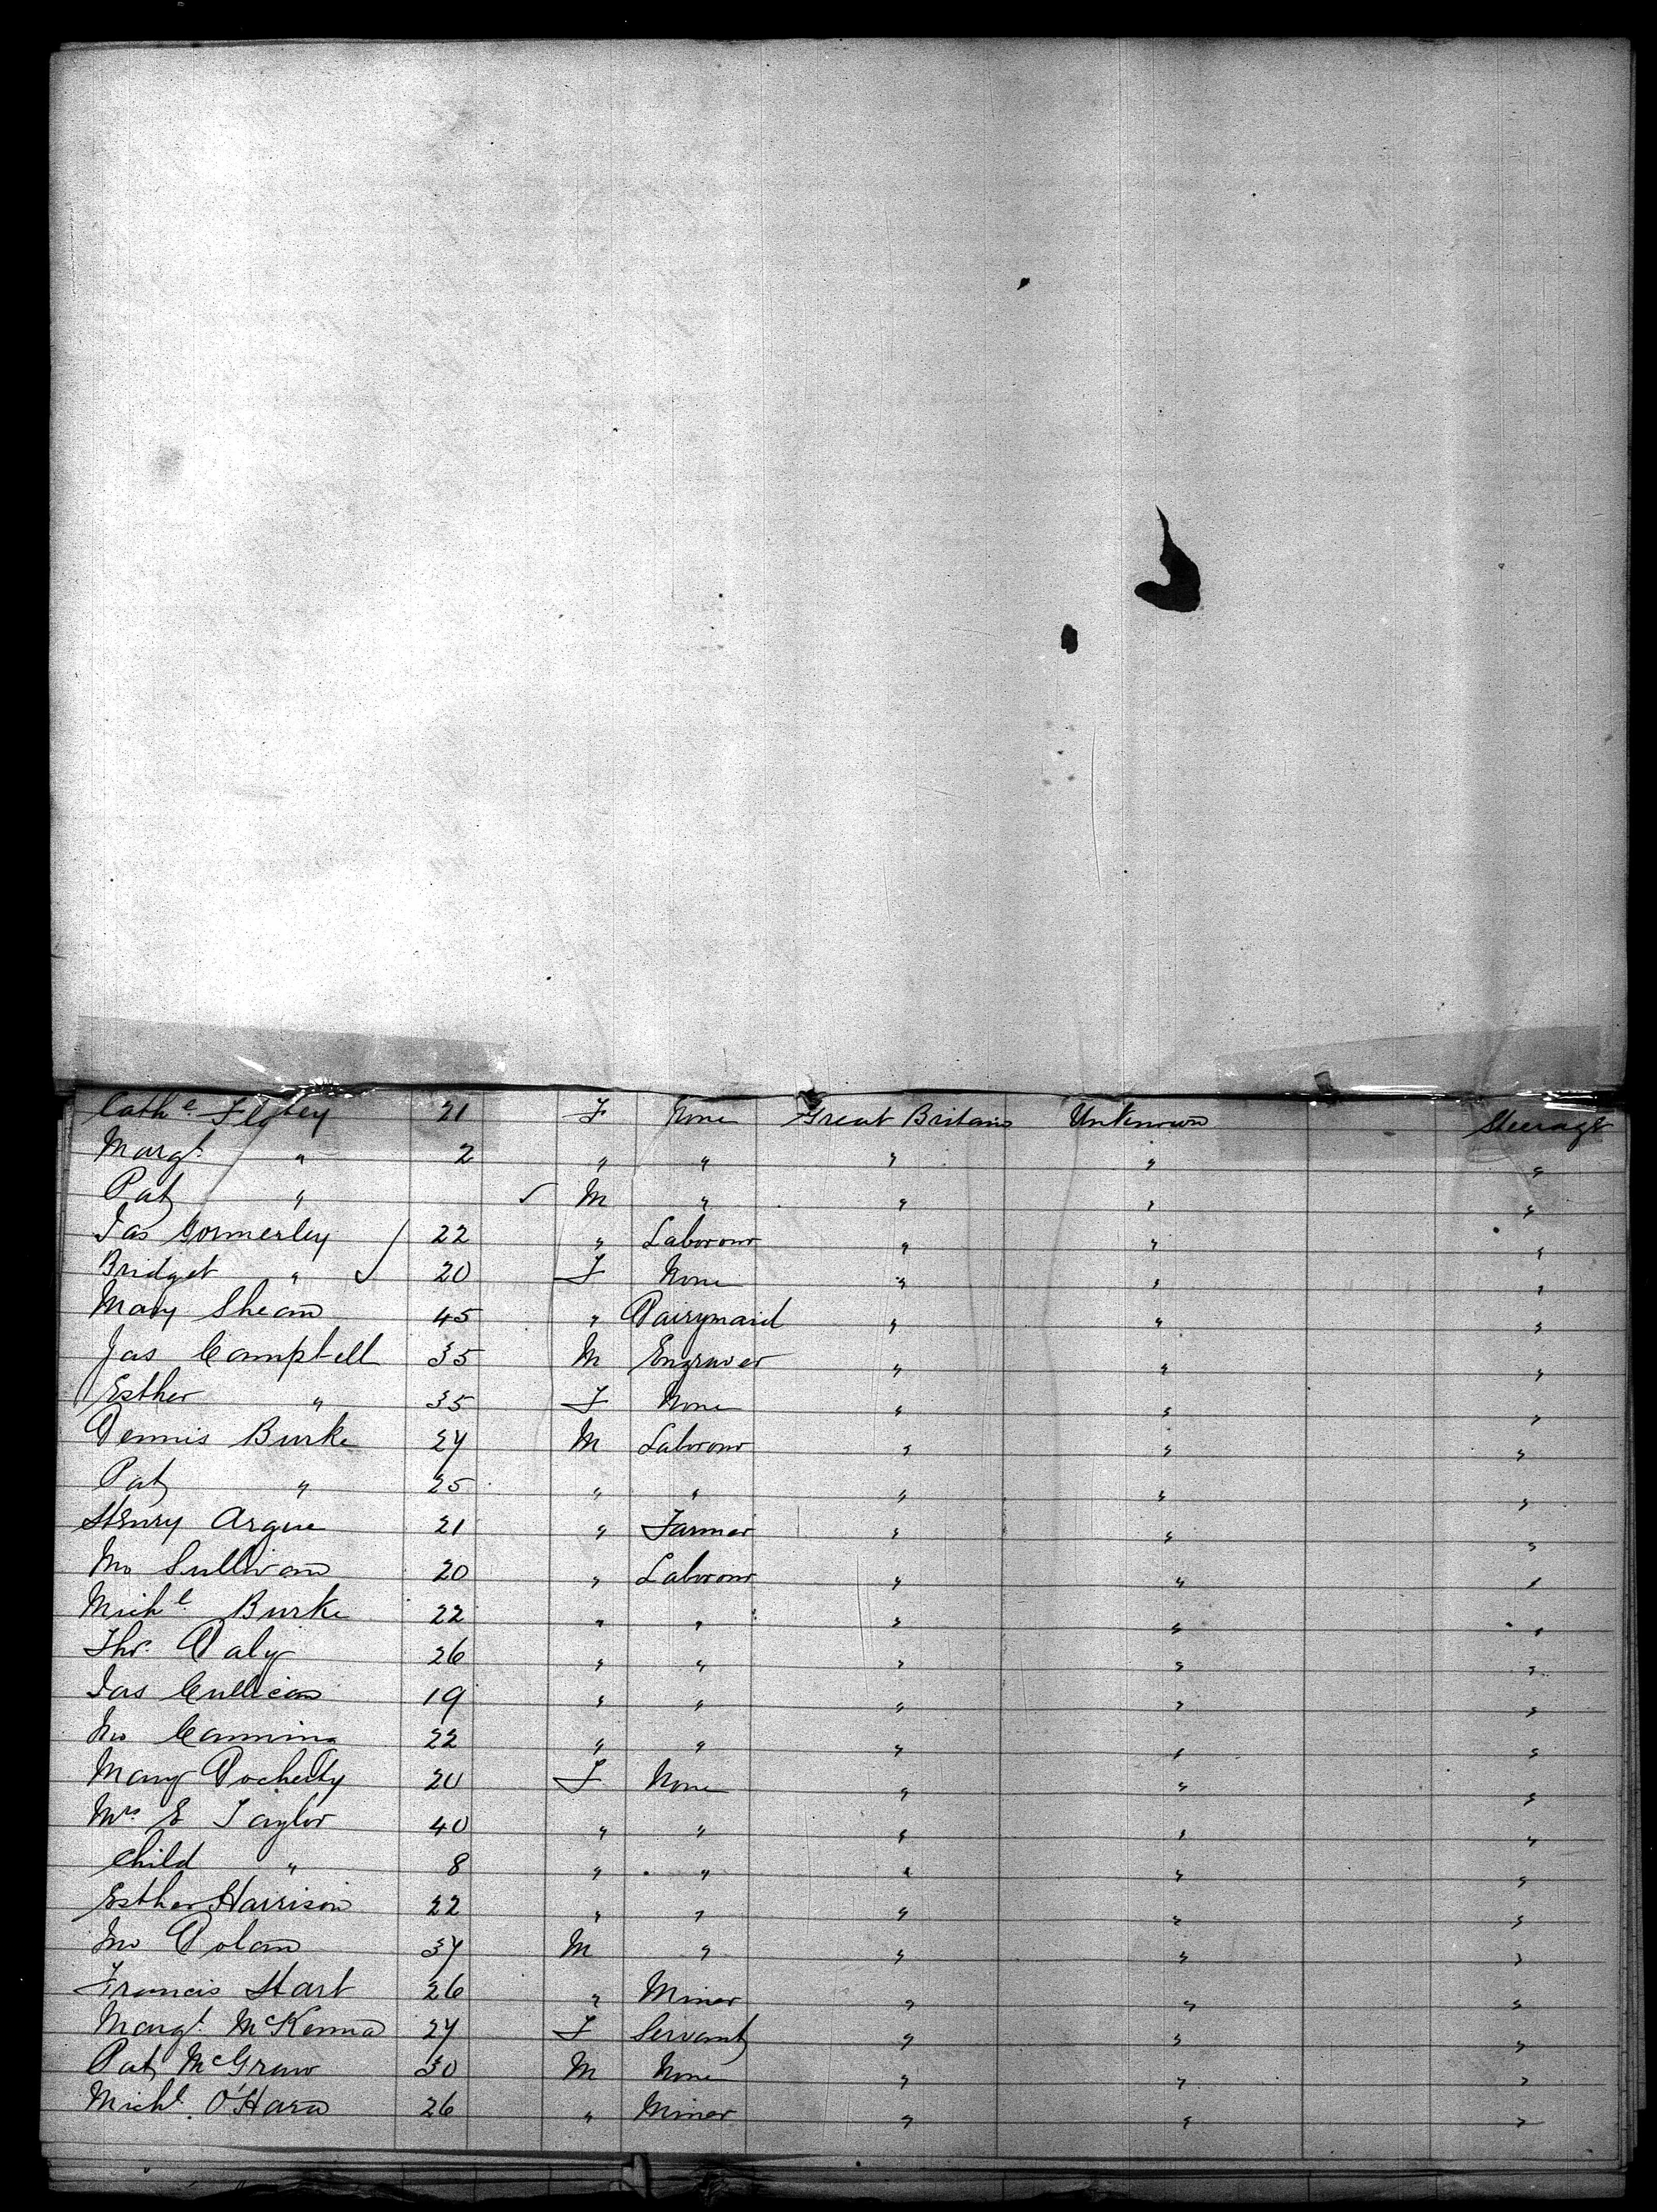 Cath.e 21 F None Great Britain Unknown Steerage
Margt. " 2 " " " " "
Pat " ✓ M " " " "
Jas Gormerley 22 " Labourer " " "
Bridget " ✓ 20 F None " " "
Mary Shean 45 " Dairymaid " " "
Jas Campbell 35 M Engraver " " "
Esther " 35 F None " " "
Dennis Burke 27 M Labourer " " "
Pat " 25 " " " " "
Henry Argue 21 " Farmer " " "
Jno Sullivan 20 " Labourer " " "
Michl. Burke 22 " " " " "
Thos. Daly 26 " " " " "
Jas Cullican 19 " " " " "
Jno Canning 22 " " " " "
Mary Docherty 20 F None " " "
Mrs E Taylor 40 " " " " "
Child " 8 " " " " "
Esther Harrison 22 " " " " "
Jno Dolan 37 M " " " "
Francis Hart 26 " Miner " " "
Margt. McKenna 27 F Servant " " "
Pat McGraw 30 M None " " "
Michl. O'Hara 26 " Miner " " "